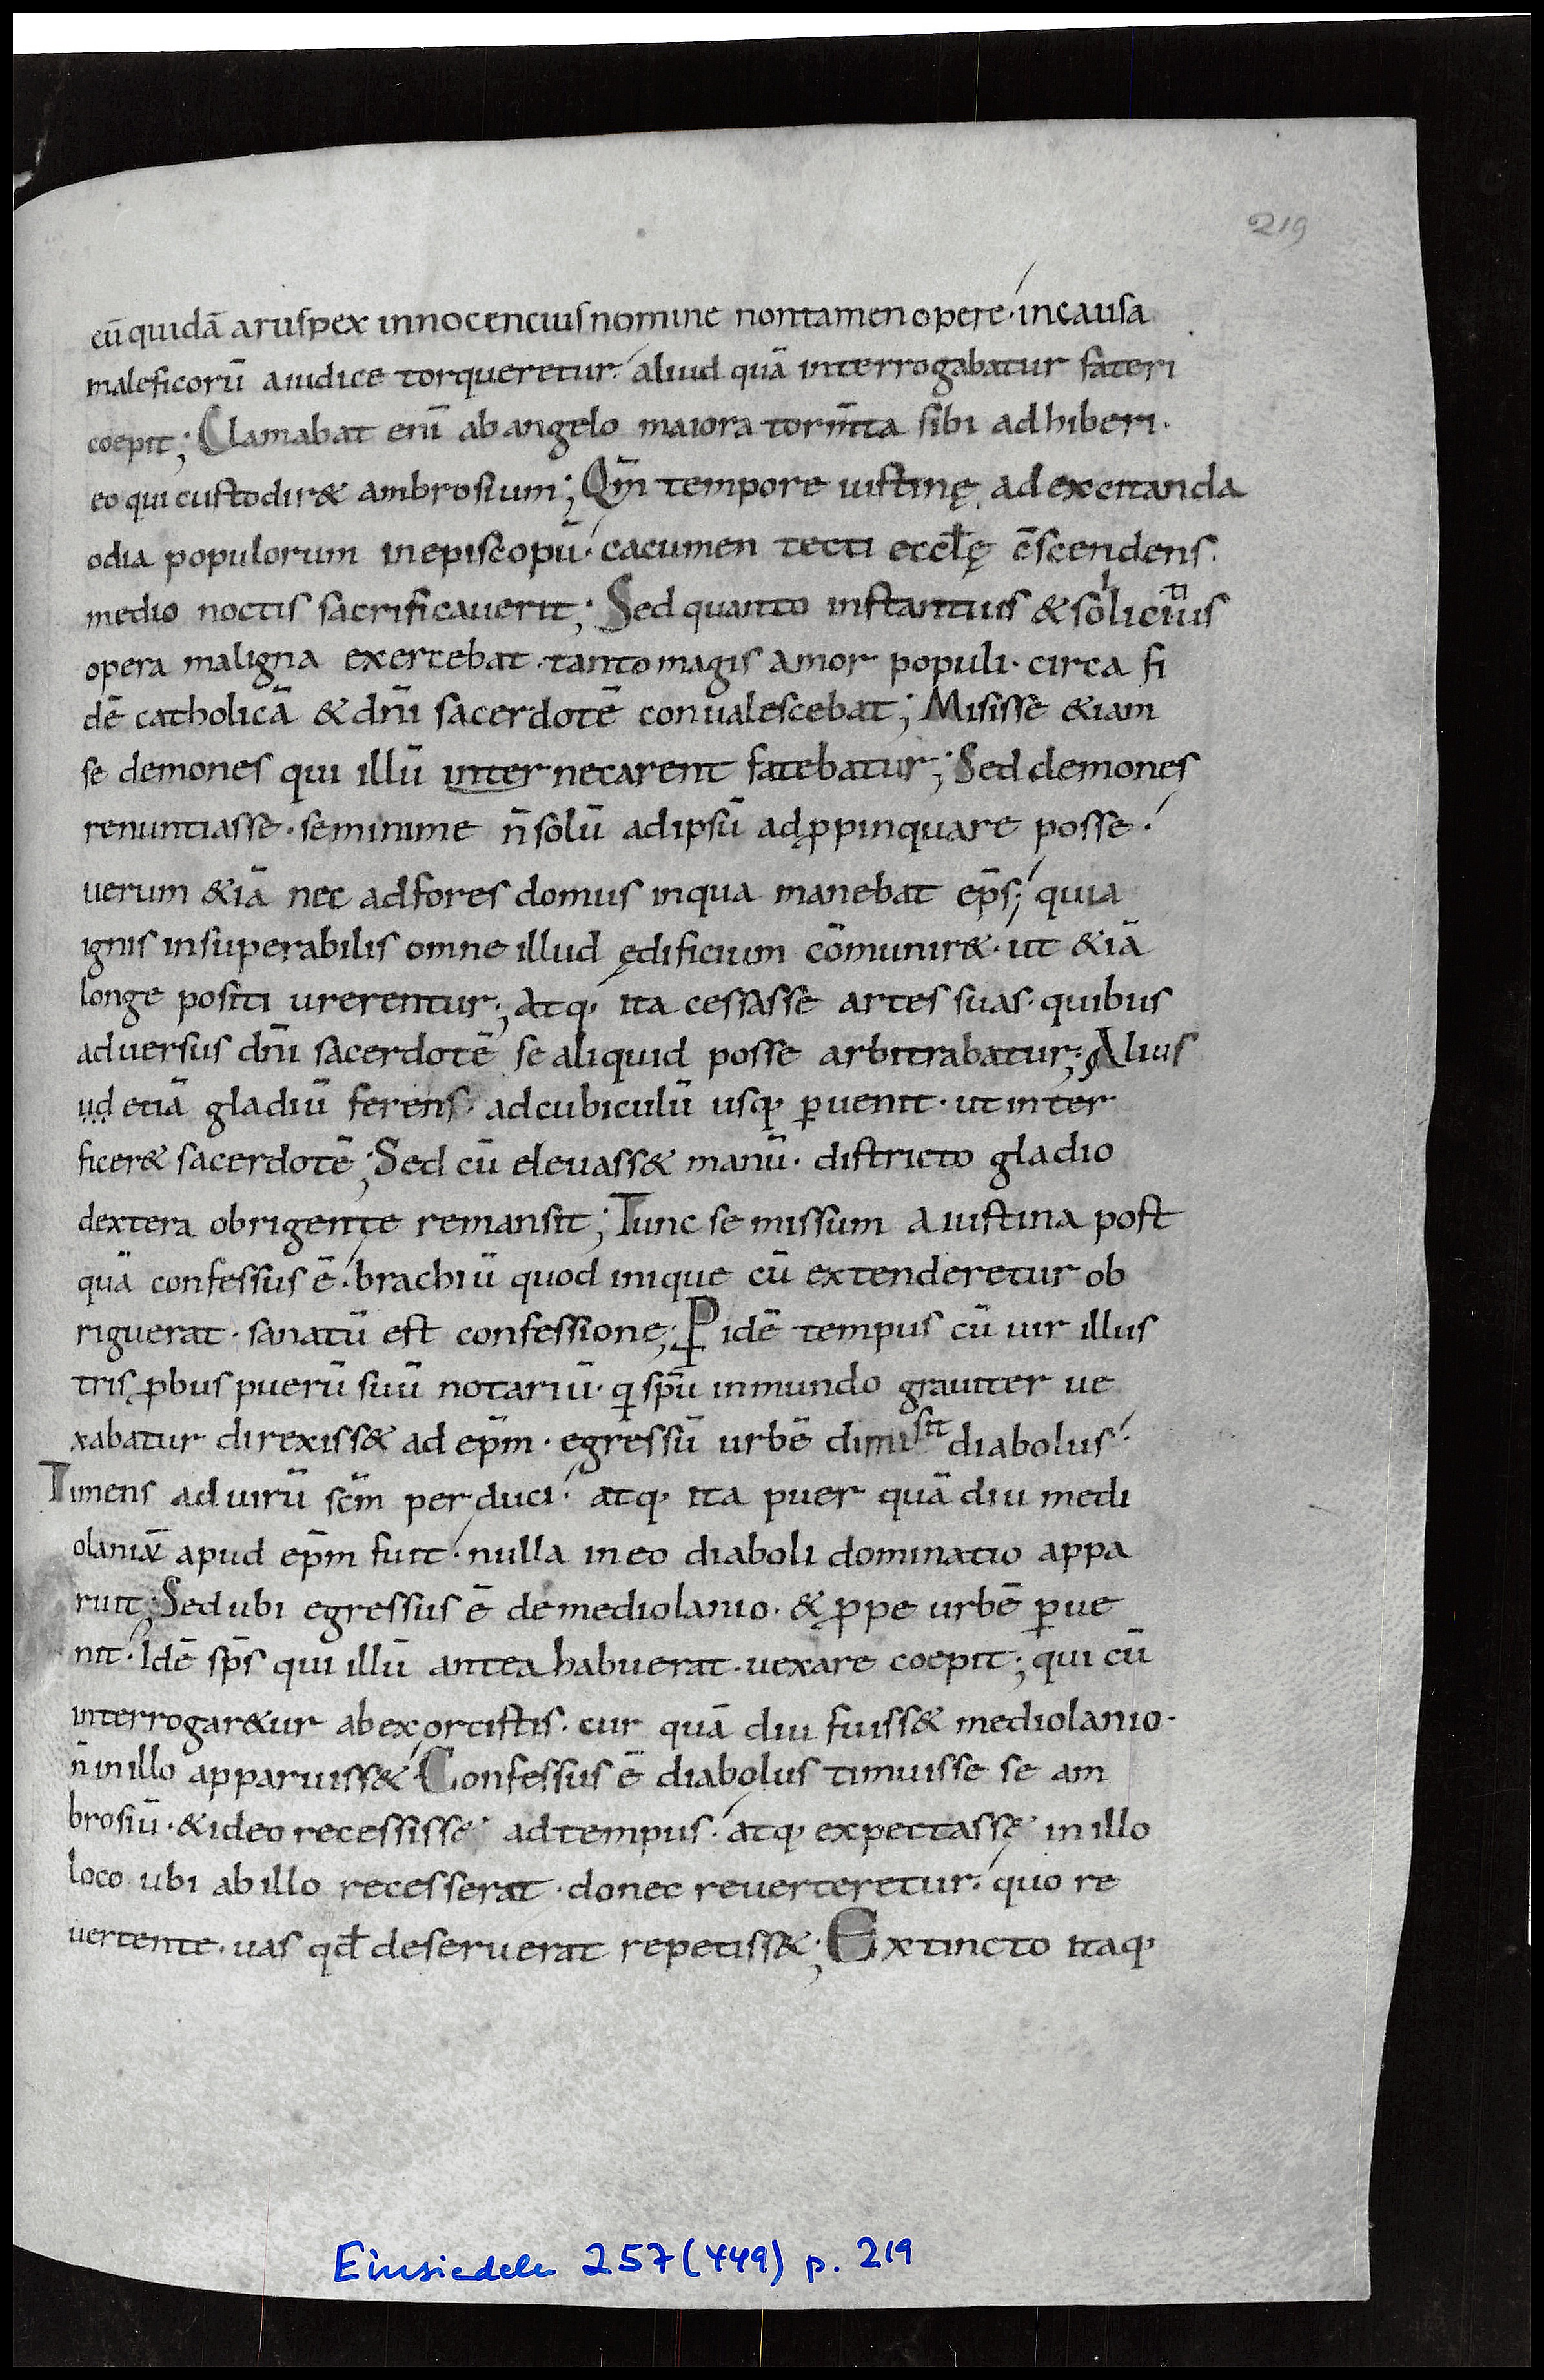 219
cū quidā aruspex innocencius nomine non tamen opere · in causa
maleficorū a iudice torqueretur · aliud quā interrogabatur fateri
coepit; Clamabat enī ab angelo maiora torm̄ta sibi adhiberi ·
eo qui custodir& ambrosium; Qm̄ tempore iustinę ad excitanda
odia populorum in episcopū · cacumen tecti eccƚę c̄scendens ·
medio noctis sacrificauerit; Sed quanto instantius & solicitius
opera maligna exercebat · tanto magis amor populi · circa fi
dē catholicā & dn̄i sacerdotē conualescebat; Misisse &iam
se demones qui illū internecarent fatebatur; Sed demones
renuntiasse · se minime n̄ solū ad ipsū adꝓpinquare posse ·
uerum &iā nec ad fores domus in qua manebat ep̄s; quia
ignis insuperabilis omne illud ędificium cōmunir& · ut &iā
longe positi urerentur; Atq; ita cessasse artes suas · quibus
aduersus dn̄i sacerdotē se aliquid posse arbitrabatur; Alius
ụḍ etiā gladiū ferens · ad cubiculū usq; ꝑuenit · ut inter
ficer& sacerdotē; Sed cū eleuass& manū · districto gladio
dextera obrigente remansit; Tunc se missum a iustina post
quā confessus ē · brachiū quod inique cū extenderetur ob
riguerat · sanatū est confessione; Ꝑ idē tempus cū uir illus
tris ꝓbus puerū suū notariū · q sp̄u inmundo grauiter ue
xabatur direxiss& ad ep̄m · egressū urbē dimisit diabolus ·
Timens ad uirū sc̄m perduci · atq; ita puer quā diu medi
olani apud ep̄m fuit · nulla in eo diaboli dominatio appa
ruit; Sed ubi egressus ē de mediolanio · & ꝓpe urbē ꝑue
nit · Idē sp̄s qui illū antea habuerat · uexare coepit; qui cū
interrogar&ur ab exorcistis · cur quā diu fuiss& mediolanio ·
n̄ in illo apparuiss& Confessus ē diabolus timuisse se am
brosiū · & ideo recessisse ad tempus · atq; expectasse in illo
loco ubi ab illo recesserat · donec reuerteretur · quo re
uertente · uas qđ deseruerat repetiss&; Extincto itaq;
Einsiedeln 257 (449) p. 219